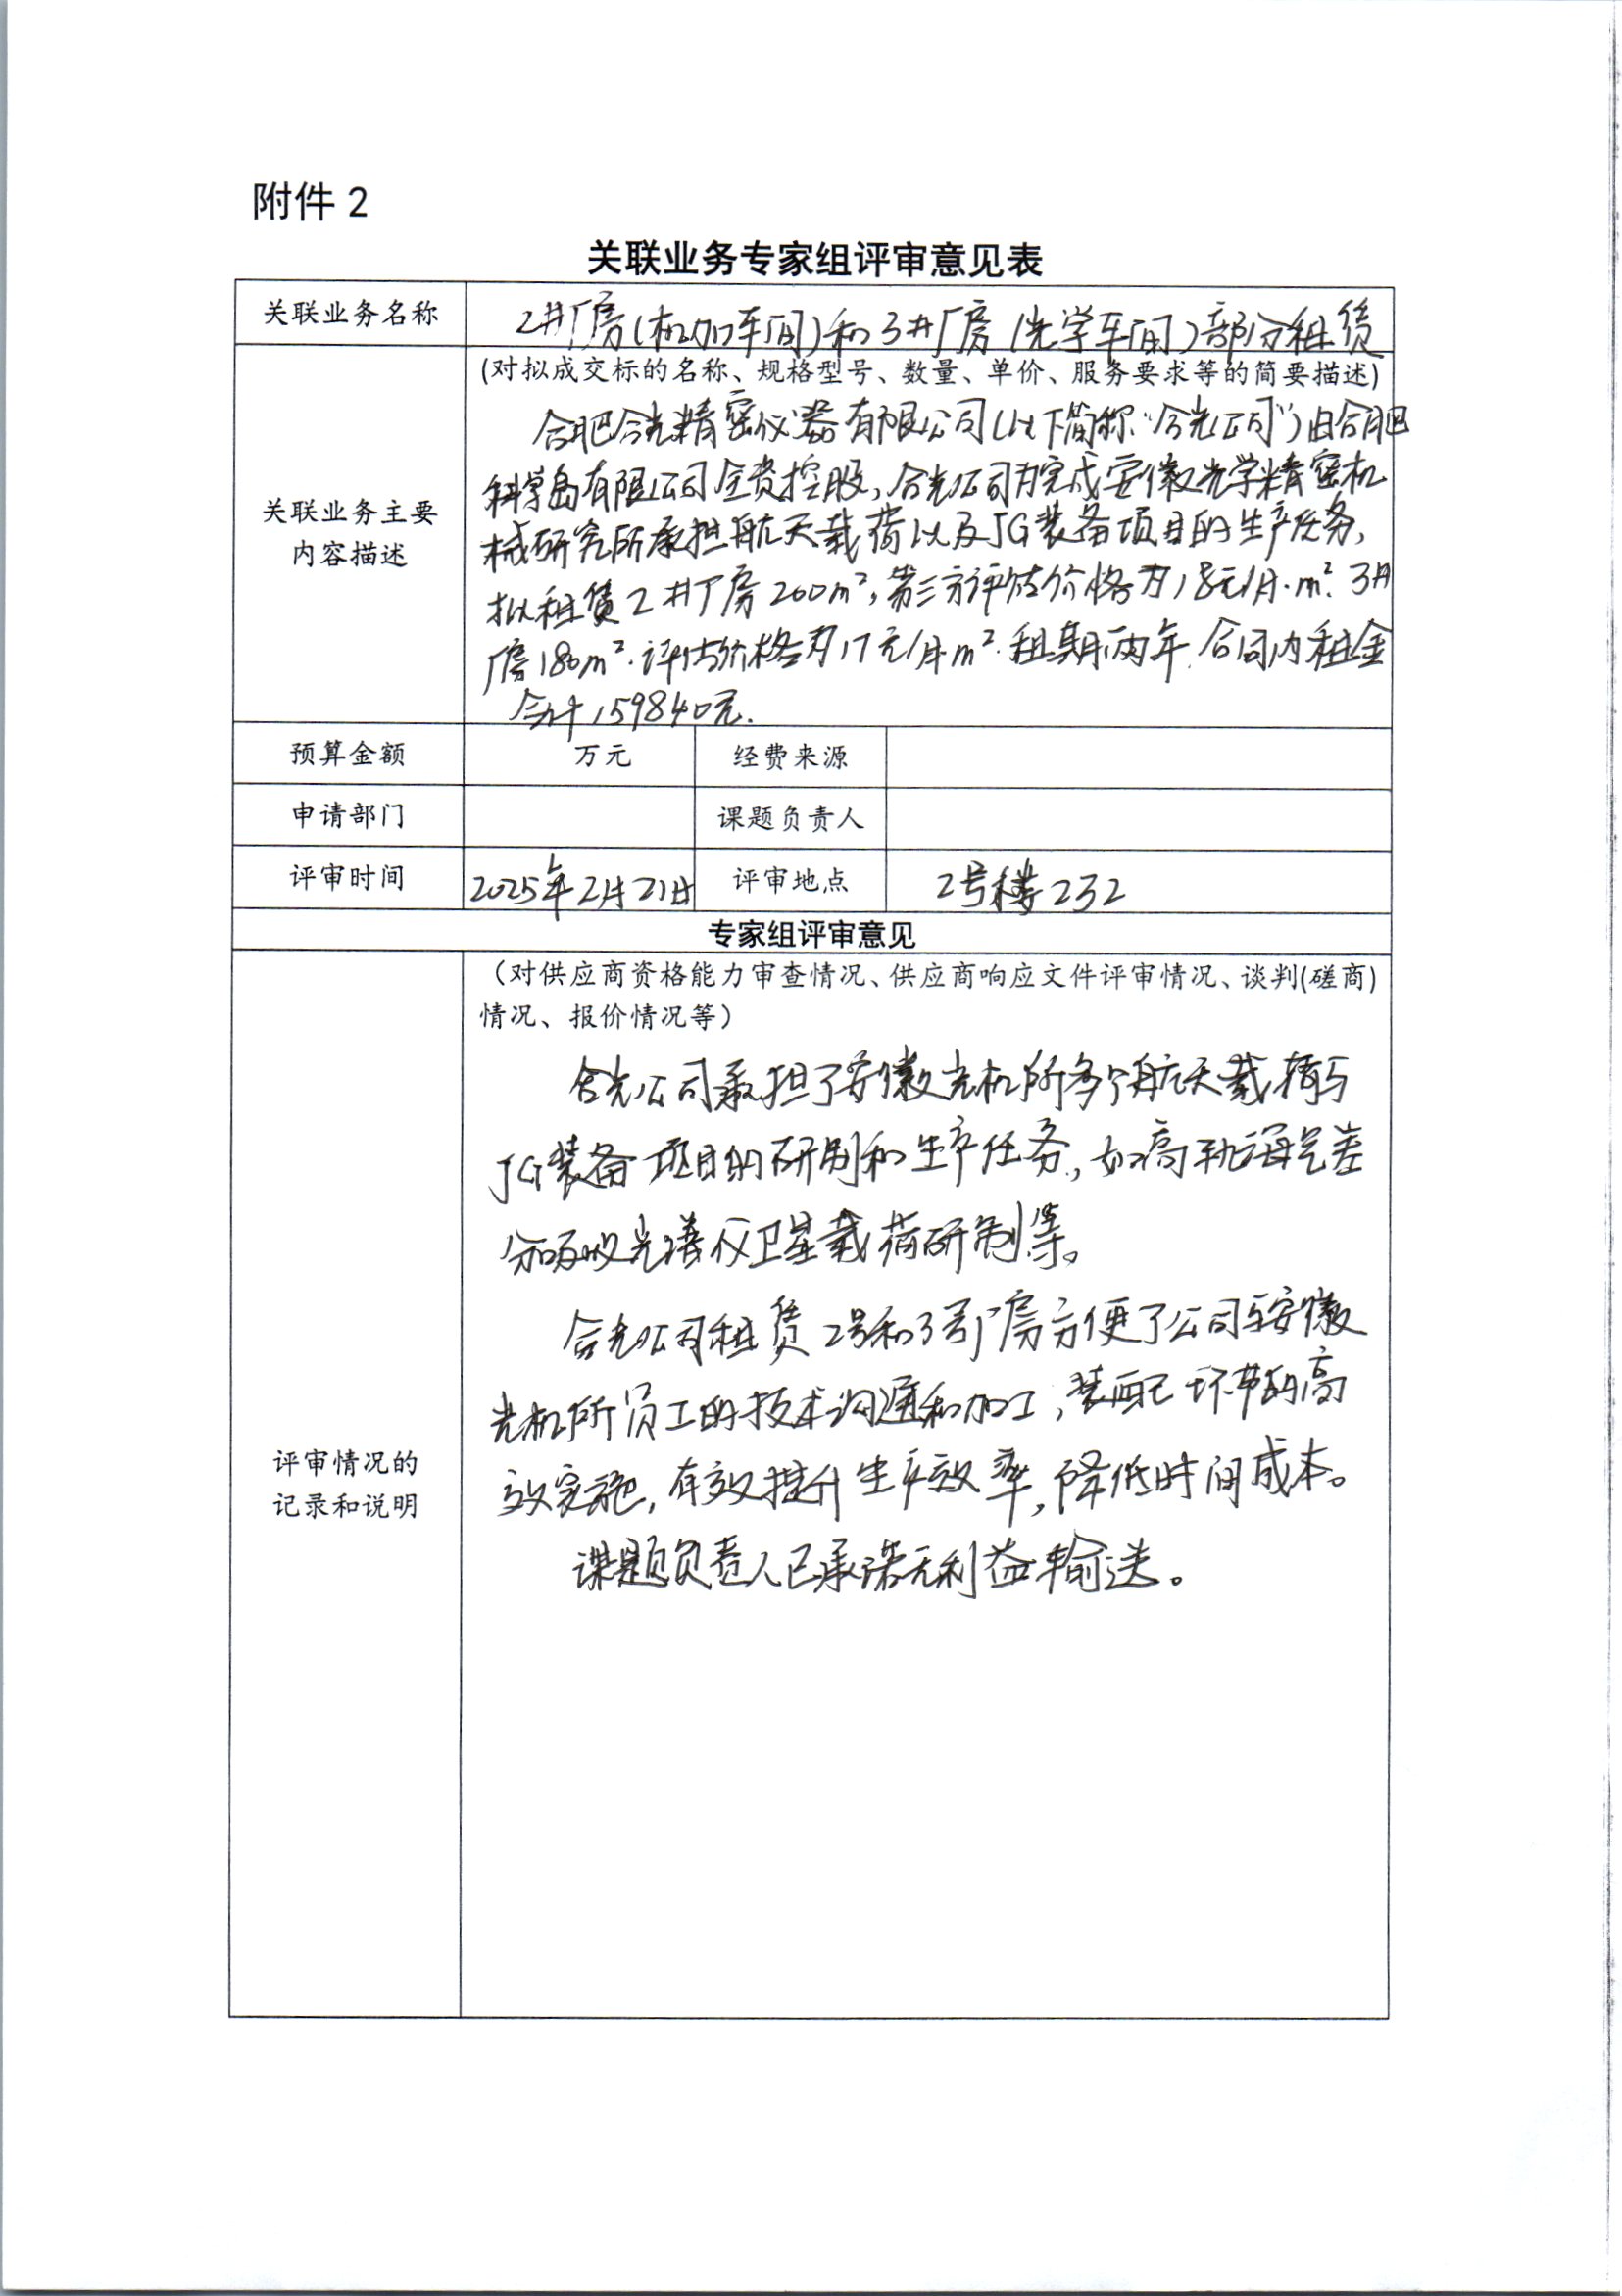 附件 2
关联业务专家组评审意见表
关联业务名称
2#厂房(机加车间)和3#厂房(光学车间)部分租赁
关联业务主要
内容描述
(对拟成交标的名称、规格型号、数量、单价、服务要求等的简要描述)
合肥合光精密仪器有限公司(以下简称“合光公司”)由合肥
科学岛有限公司全资控股,合光公司为完成安徽光学精密机
械研究所承担航天载荷以及JG装备项目的生产任务,
拟租赁2#厂房200m²,第三方评估价格为18元/月·m².3#
厂房180m².评估价格为17元/月·m².租期两年.合同内租金
合计159840元.
预算金额 万元 经费来源
申请部门 课题负责人
评审时间 2025年2月21日 评审地点 2号楼232
专家组评审意见
评审情况的
记录和说明
(对供应商资格能力审查情况、供应商响应文件评审情况、谈判(磋商)
情况、报价情况等)
合光公司承担了安徽光机所多个航天载荷与
JG装备项目的研制和生产任务,如高轨海气差
分吸收光谱仪卫星载荷研制等。
合光公司租赁2号和3号厂房方便了公司与安徽
光机所员工的技术沟通和加工,装配环节的高
效实施,有效提升生产效率,降低时间成本。
课题负责人已承诺无利益输送。